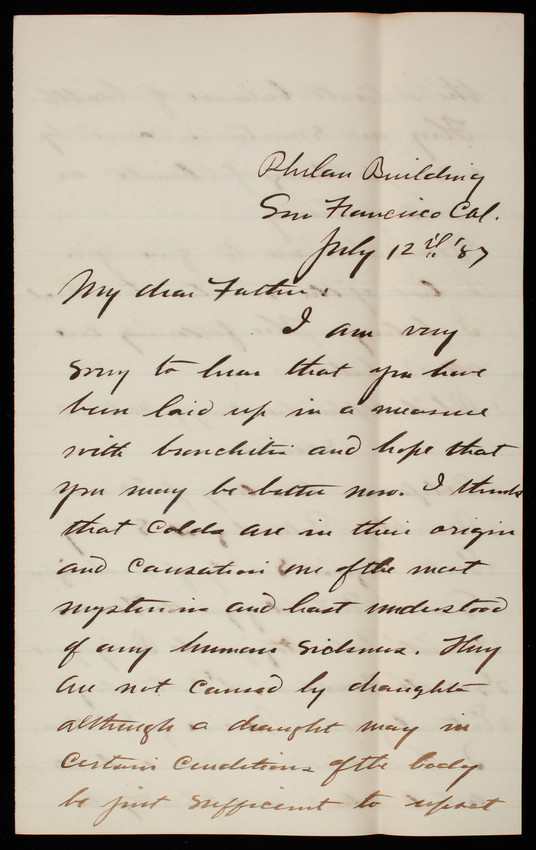 Phelan Building
San Francisco Cal.
July 12th '87
My dear Father:
I am very
sorry to hear that you have
been laid up in a measure
with bronchitis and hope that
you may be better now. I think
that colds are in their origin
and causation one of the most
mysterious and least understood
of any human sickness. They
are not caused by draughts
although a draught may in
certain conditions of the body
be just sufficient to upset